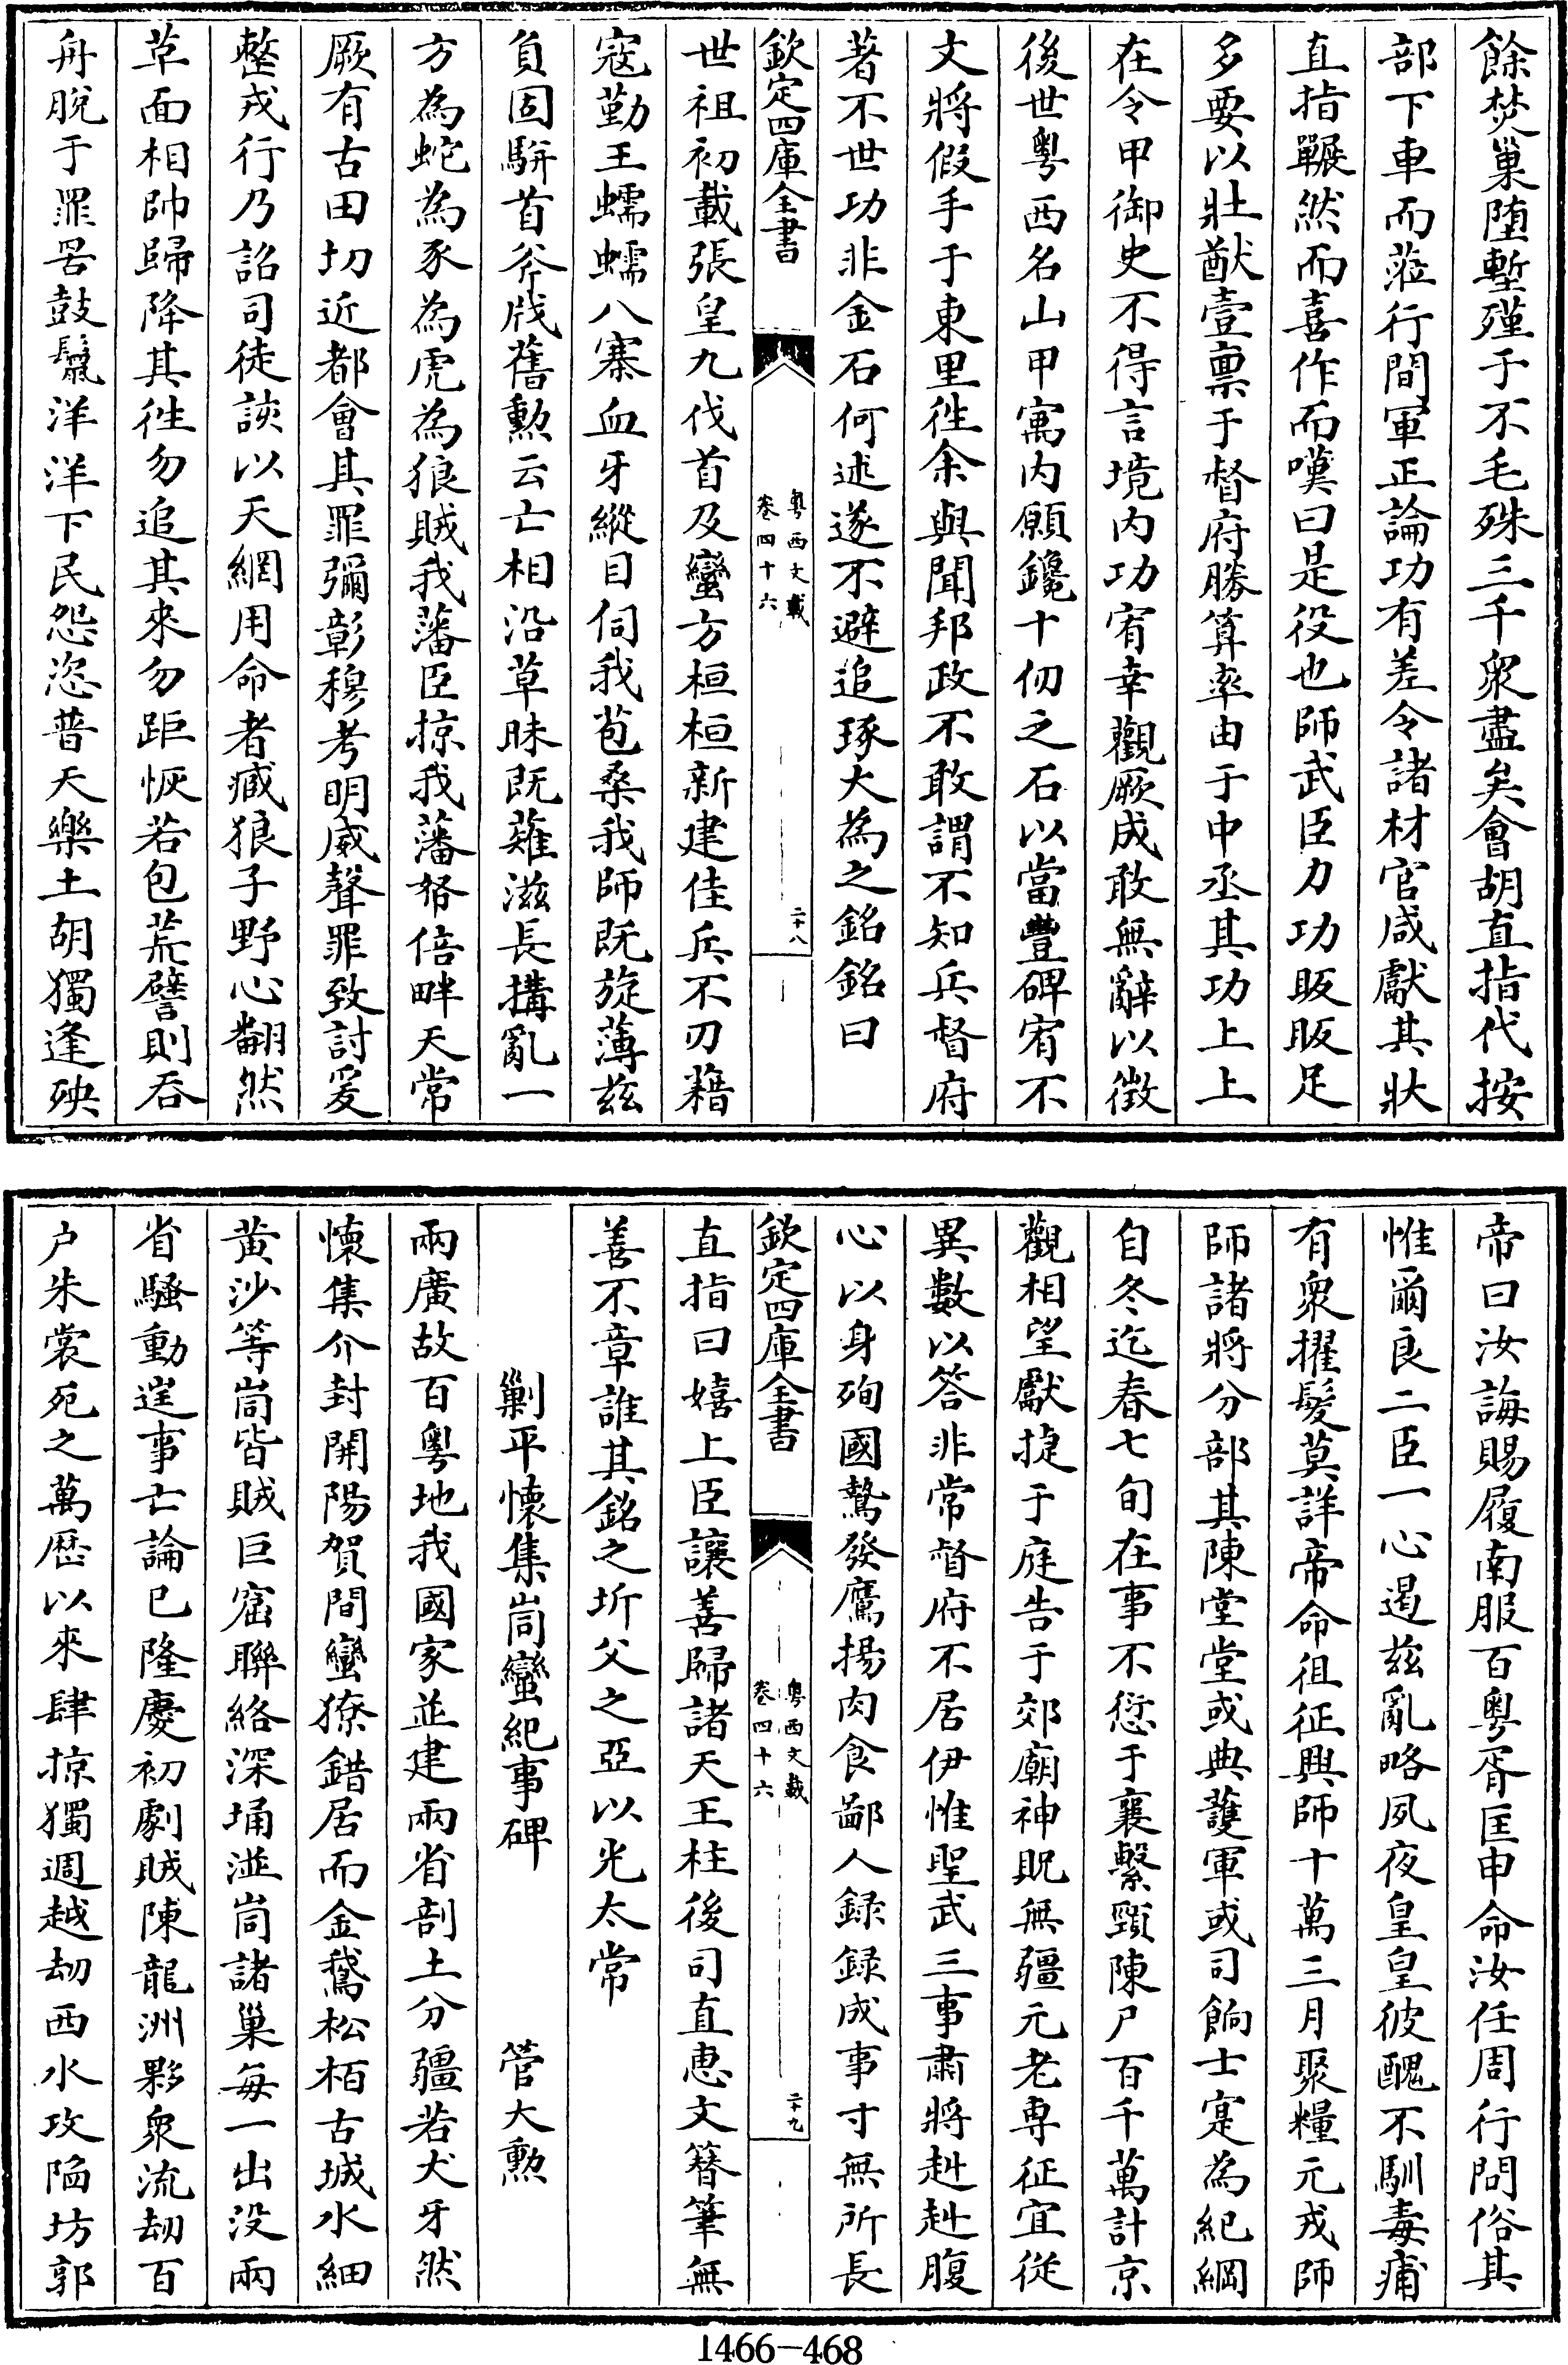 餘焚巢堕塹殣于不毛殊三千衆盡矣會胡直指代按
部下車而蒞行間軍正論功有差令諸材官咸獻其狀
直指囅然而喜作而嘆曰是役也師武臣力功昄昄足
多要以壯猷壹禀于督府勝算率由于中丞其功上上
在令甲御史不得言境内功宥幸觀厥成敢無辭以徵
後世粤西名山甲寓内願鑱十仞之石以當豐碑宥不
文將假手于東里徃余與聞邦政不敢謂不知兵督府
著不世功非金石何述遂不避追琢大為之銘銘曰
欽定四庫全書
粤西文載
卷四十六
二十八
世祖初載張皇九伐首及蠻方桓桓新建佳兵不刃藉
寇勤王蠕蠕八寨血牙縱目伺我苞桑我師既旋薄兹
負固駢首斧戕舊勲云亡相沿草昧既薙滋長搆亂一
方為蛇為豕為虎為狼賊我藩臣掠我藩帑倍畔天常
厥有古田切近都會其罪彌彰穆考明威聲罪致討爰
整戎行乃詔司徒誒以天網用命者臧狼子野心翻然
草面相帥歸降其徃勿追其來勿距恢若包荒譬則吞
舟脫于罪罟鼓鬛洋洋下民怨恣普天樂土胡獨逢殃
帝曰汝誨賜履南服百粤胥匡申命汝任周行問俗其
惟爾良二臣一心遏兹亂略夙夜皇皇彼醜不馴毒痡
有衆擢髮莫詳帝命徂征興師十萬三月聚糧元戎師
師諸將分部其陳堂堂或典䕶軍或司餉士寔為紀綱
自冬迄春七旬在事不愆于襄繫頸陳尸百千萬計京
觀相望獻㨗于庭告于郊廟神貺無疆元老専征宜從
異數以答非常督府不居伊惟聖武三事肅將赳赳腹
心以身殉國鷙發鷹揚肉食鄙人録録成事寸無所長
欽定四庫全書
粤西文載
卷四十六
二十九
直指曰嬉上臣讓善歸諸天王柱後司直恵文簮筆無
善不章誰其銘之圻父之亞以光太常
剿平懷集峝蠻紀事碑
管大勲
兩廣故百粤地我國家並建兩省剖土分疆若犬牙然
懷集介封開陽賀間蠻獠錯居而金鵞松栢古城水細
黄沙等峝皆賊巨窟聯絡深埇湴峝諸巢每一出没兩
省騷動逞事亡論已隆慶初劇賊陳龍洲夥衆流刼百
户朱裳死之萬歴以來肆掠獨週越刼西水攻陷坊郭
1466-468